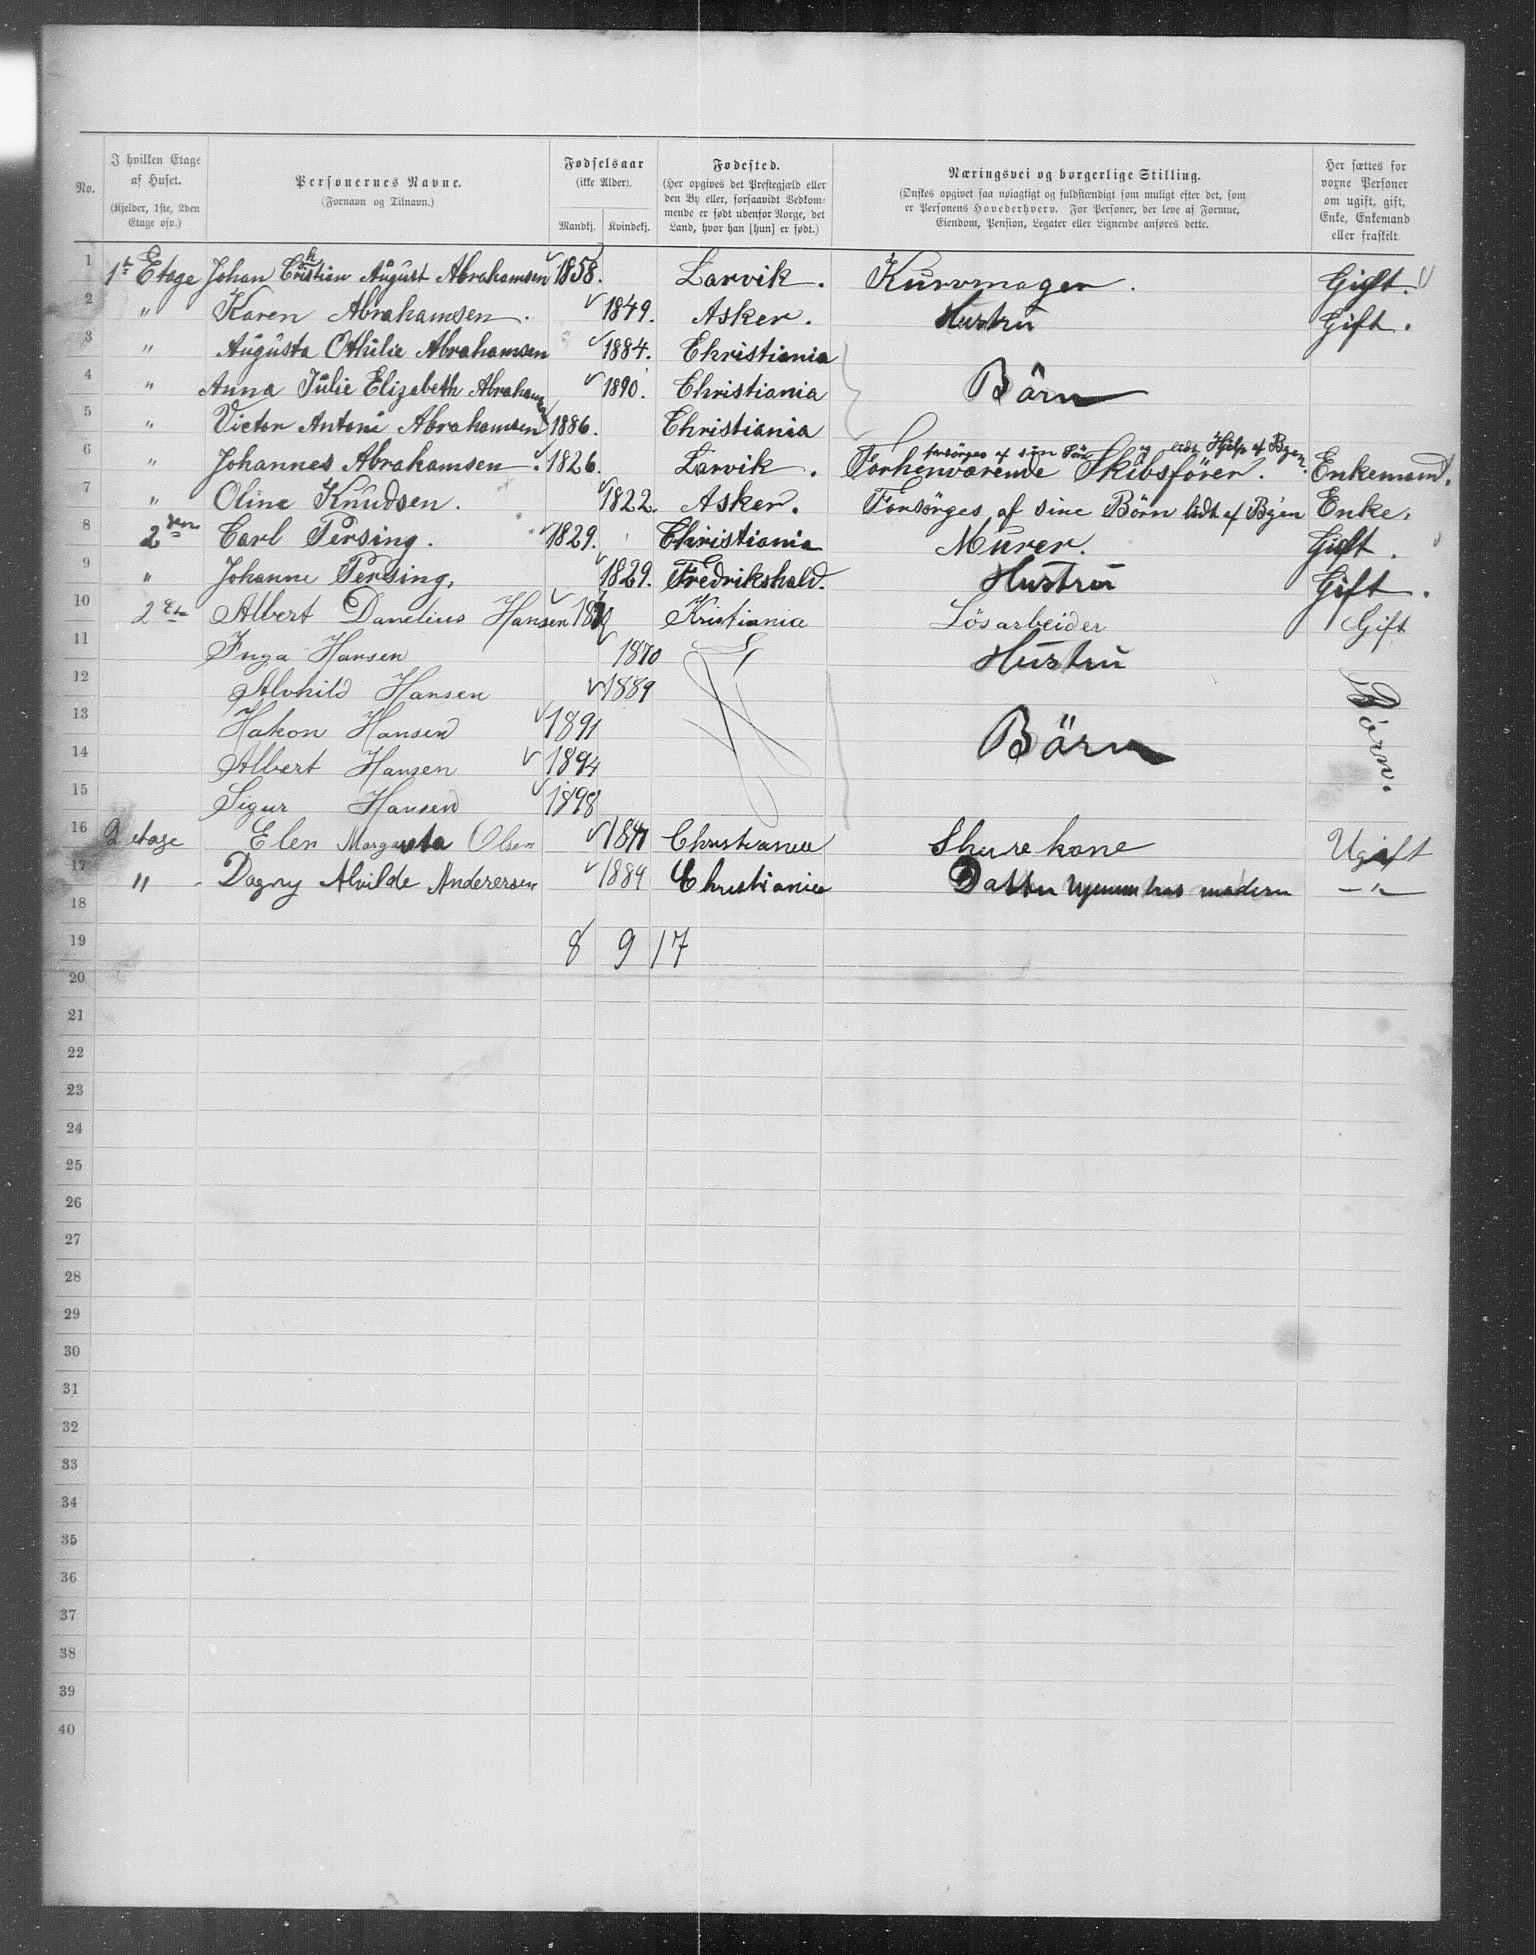 No.
I hvilken Etage af Huset. (Kjelder, 1ste, 2den Etage osv.)
Personernes Navne. (Fornavn og Tilnavn.)
Fødselsaar (ikke Alder). Mandkj. Kvindekj.
Fødested. (Her opgives det Prestegjæld eller den By eller, forsaavidt Vedkommende er født udenfor Norge, det Land, hvor han [hun] er født.)
Næringsvei og borgerlige Stilling. (Ønskes opgivet saa nøiagtigt og fuldstændigt som muligt efter det, som er Personens Hovederhverv. For Personer, der leve af Formue, Eiendom, Pension, Legater eller Lignende anføres dette.
Her sættes for voxne Personer om ugift, gift, Enke, Enkemand eller fraskilt.
1 1st Etage Johan Christian August Abrahamsen 1858. Larvik. Kurvmager. Gift.
2 " Karen Abrahamsen. 1849. Asker. Hustru Gift.
3 " Augusta Othilie Abrahamsen 1884. Christiania
4 " Anna Julie Elizabeth Abrahamsen 1890. Christiania Börn
5 " Victor Antoni Abrahamsen 1886. Christiania
forsörges af sin Sön og lidt Hjelp af Byen.
6 " Johannes Abrahamsen. 1826. Larvik. Forhenværende Skibsförer. Enkemand.
7 " Oline Knudsen. 1822. Asker. Forsörges af sine Börn lidt af Byen Enke.
8 2den Carl Persing. 1829. Christiania Murer. Gift.
9 " Johanne Persing. 1829. Fredrikshald. Hustru Gift.
10 2 Et Albert Danelius Hansen Kristiania Lösarbeider Gift
11 Inga Hansen 1870 Hustru
12 Alvhild Hansen 1889 Börn.
13 Hakon Hansen 1891 Börn
14 Albert Hansen 1894
15 Sigur Hansen 1898
16 2 etage Elen Margareta Olsen Christiania Skurekone Ugift
17 " Dagny Alvilde Anderersen 1889 Christiania Datter hjemme hos modern — " —
18
19 8 9 17
20
21
22
23
24
25
26
27
28
29
30
31
32
33
34
35
36
37
38
39
40